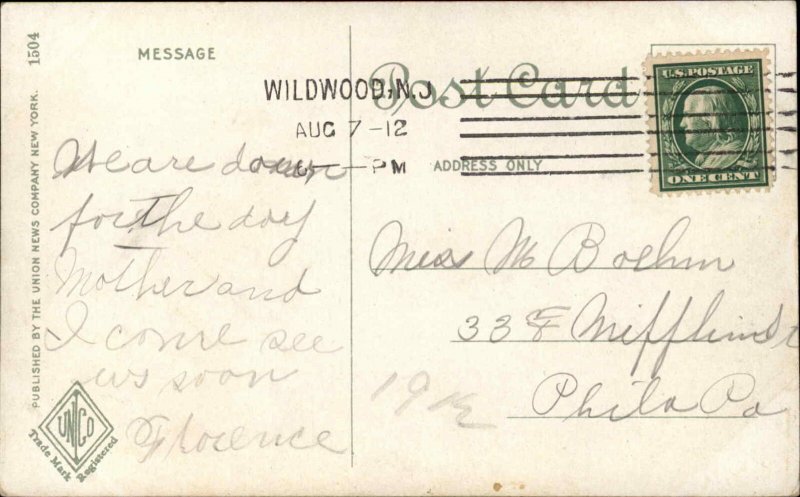 1504
PUBLISHED BY THE UNION NEWS COMPANY NEW YORK.
MESSAGE
We are down
for the day
Mother and
I come see
us soon
Florence
UNCO
Trade Mark Registered
Post Card
WILDWOOD, N.J
AUG 7-12
PM
ADDRESS ONLY
U.S. POSTAGE
ONE CENT
Miss M Boehm
Mifflin St
Phila Pa